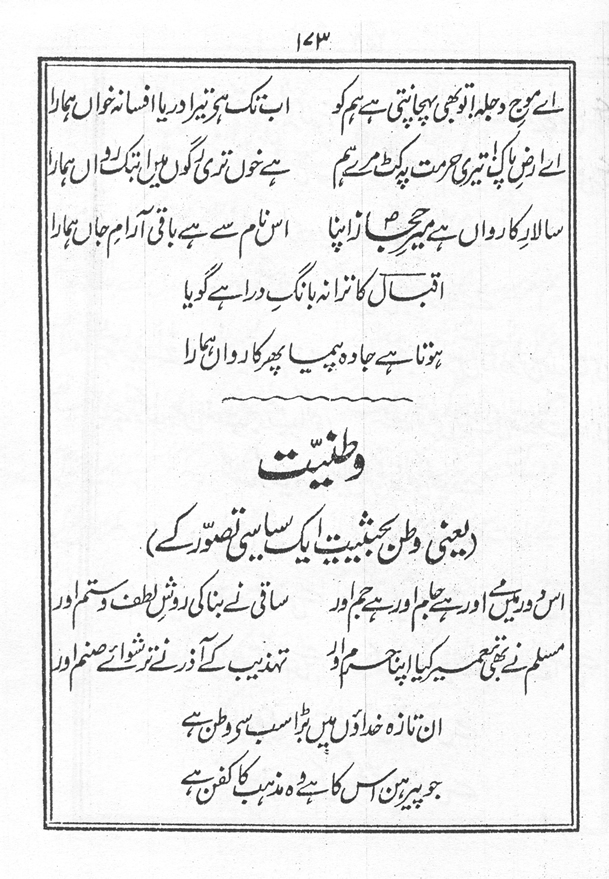 ۱۷۳
اے موجِ دجلہ! تو بھی پہچانتی ہے ہم کو اب تک ہے تیرا دریا افسانہ خواں ہمارا
اے ارضِ پاک! تیری حرمت پہ کٹ مرے ہم ہے خوں تری رگوں میں ابتک رواں ہمارا
سالارِ کارواں ہے میرِ حجازؐ اپنا اس نام سے ہے باقی آرامِ جاں ہمارا
اقبال کا ترانہ بانگِ درا ہے گویا
ہوتا ہے جادہ پیما پھر کارواں ہمارا
وطنیّت
(یعنی وطن بحیثیت ایک سیاسی تصوّر کے)
اس دور میں مے اور ہے جام اور ہے جم اور ساقی نے بنا کی روشِ لطف و ستم اور
مسلم نے بھی تعمیر کیا اپنا حرم اور تہذیب کے آذر نے ترشوائے صنم اور
ان تازہ خداؤں میں بڑا سب سے وطن ہے
جو پیرہن اس کا ہے وہ مذہب کا کفن ہے